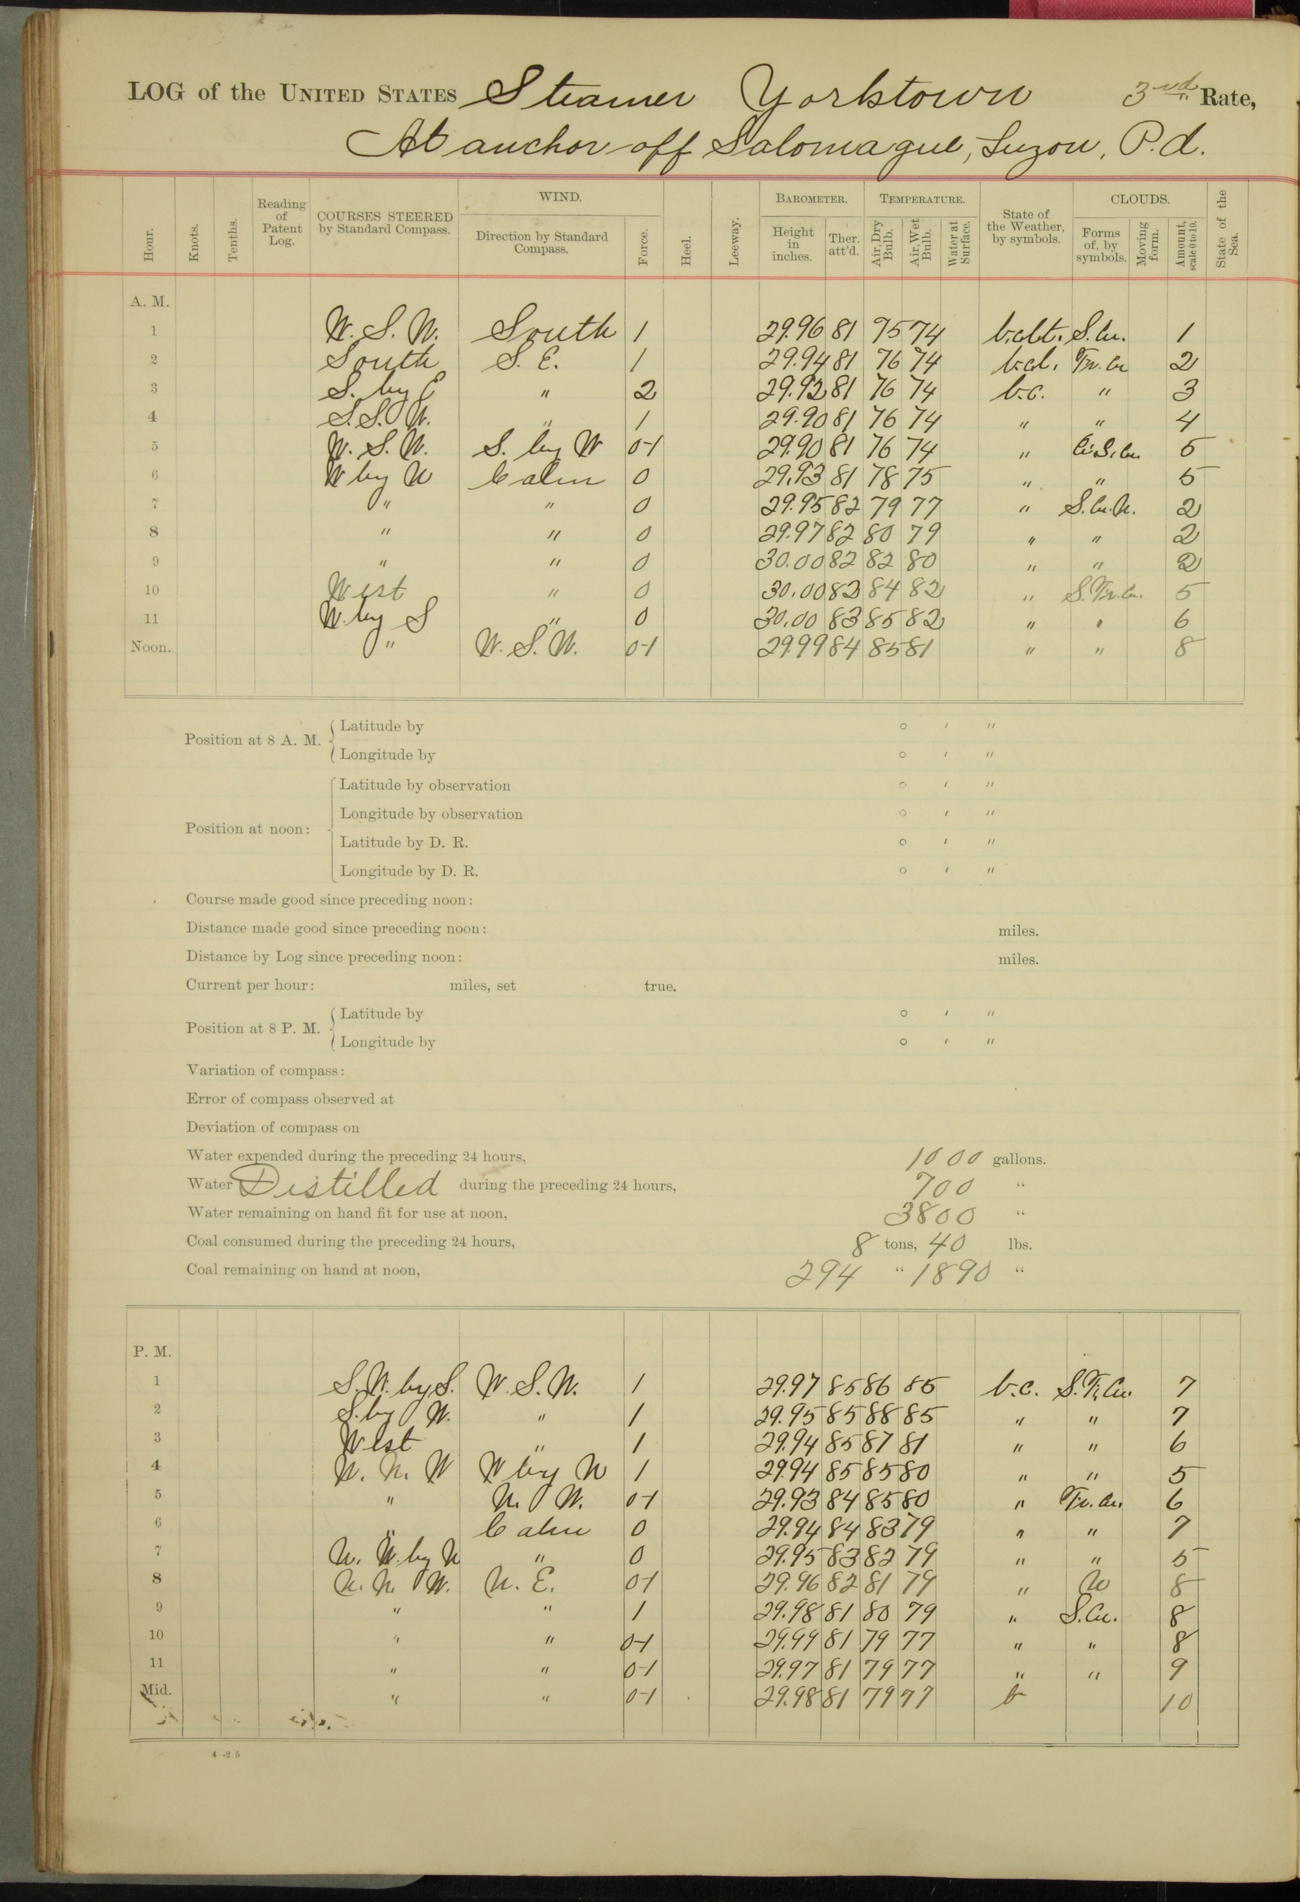 LOG of the UNITED STATES Steamer Yorktown 3rd Rate,
At anchor off Salomague, Luzon, P.I.
Hour. Knots. Tenths. Reading of Patent Log. COURSES STEERED by Standard Compass. WIND. Direction by Standard Compass. Force. Heel. Leeway. BAROMETER. Height in inches. Ther. att'd. TEMPERATURE. Air, Dry Bulb. Air, Wet Bulb. Water at Surface. State of the Weather, by symbols. CLOUDS. Forms of, by symbols. Moving form. Amount, scale 0 to 10. State of the Sea.
A. M.
1 W. S. W. South 1 29.96 81 75 74 S.Cu. 1
2 South S. E. 1 29.94 81 76 74 2
3 S. by E " 2 29.92 81 76 74 b.c. " 3
4 S.S. W. " 1 29.90 81 76 74 " " 4
5 W. S. W. S. by W 0-1 29.90 81 76 74 " 5
6 W by N Calm 0 29.93 81 78 75 " " 5
7 " " 0 29.95 82 79 77 " S.Cu.N. 2
8 " " 0 29.97 82 80 79 " " 2
9 " " 0 30.00 82 82 80 " " 2
10 West " 0 30.00 83 84 82 " 5
11 W. by S " 0 30.00 83 85 82 " " 6
Noon. " W. S. W. 0-1 29.99 84 85 81 " " 8
Position at 8 A. M. Latitude by ° ' "
Longitude by ° ' "
Position at noon: Latitude by observation ° ' "
Longitude by observation ° ' "
Latitude by D. R. ° ' "
Longitude by D. R. ° ' "
Course made good since preceding noon:
Distance made good since preceding noon: miles.
Distance by Log since preceding noon: miles.
Current per hour: miles, set true.
Position at 8 P. M. Latitude by ° ' "
Longitude by ° ' "
Variation of compass:
Error of compass observed at
Deviation of compass on
Water expended during the preceding 24 hours, 1000 gallons.
Water Distilled during the preceding 24 hours, 700 "
Water remaining on hand fit for use at noon, 3800 "
Coal consumed during the preceding 24 hours, 8 tons, 40 lbs.
Coal remaining on hand at noon, 294 " 1890 "
P. M.
1 S.W. by S. W. S. W. 1 29.97 85 86 85 b.c. 7
2 S. by W. " 1 29.95 85 88 85 " " 7
3 West " 1 29.94 85 87 81 " " 6
4 W. N. W W by N 1 29.94 85 85 80 " " 5
5 " N. W. 0-1 29.93 84 85 80 " 6
6 " Calm 0 29.94 84 83 79 " " 7
7 N. W. by N " 0 29.95 83 82 79 " " 5
8 N. N. W. N. E. 0-1 29.96 82 81 79 " N 8
9 " " 1 29.98 81 80 79 " S.Cu. 8
10 " " 0-1 29.99 81 79 77 " " 8
11 " " 0-1 29.97 81 79 77 " " 9
Mid. " " 0-1 29.98 81 79 77 10